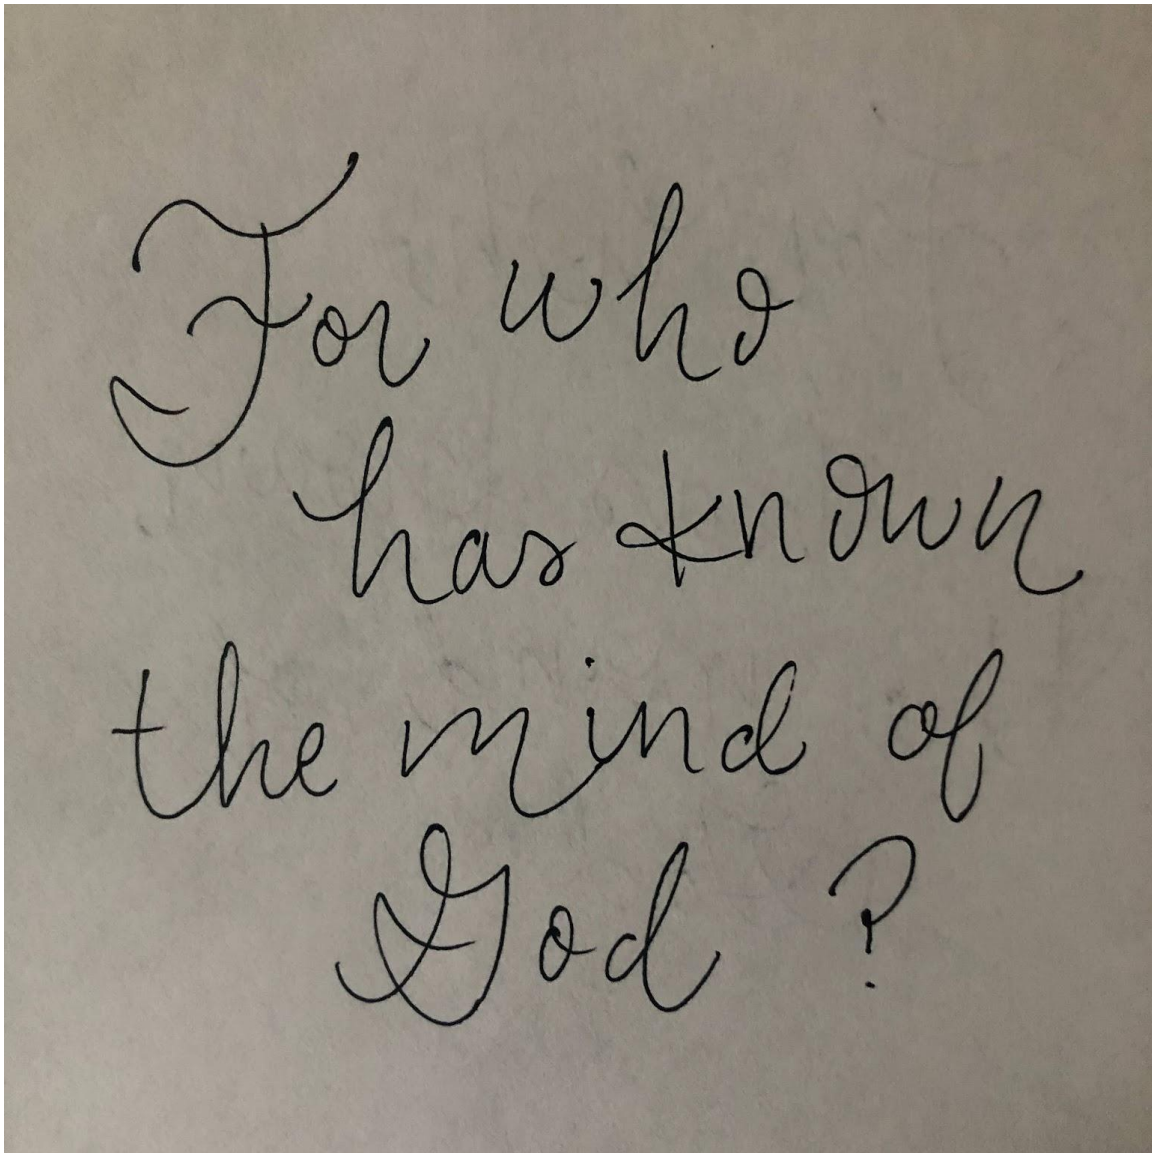 For who
has known
the mind of
God ?